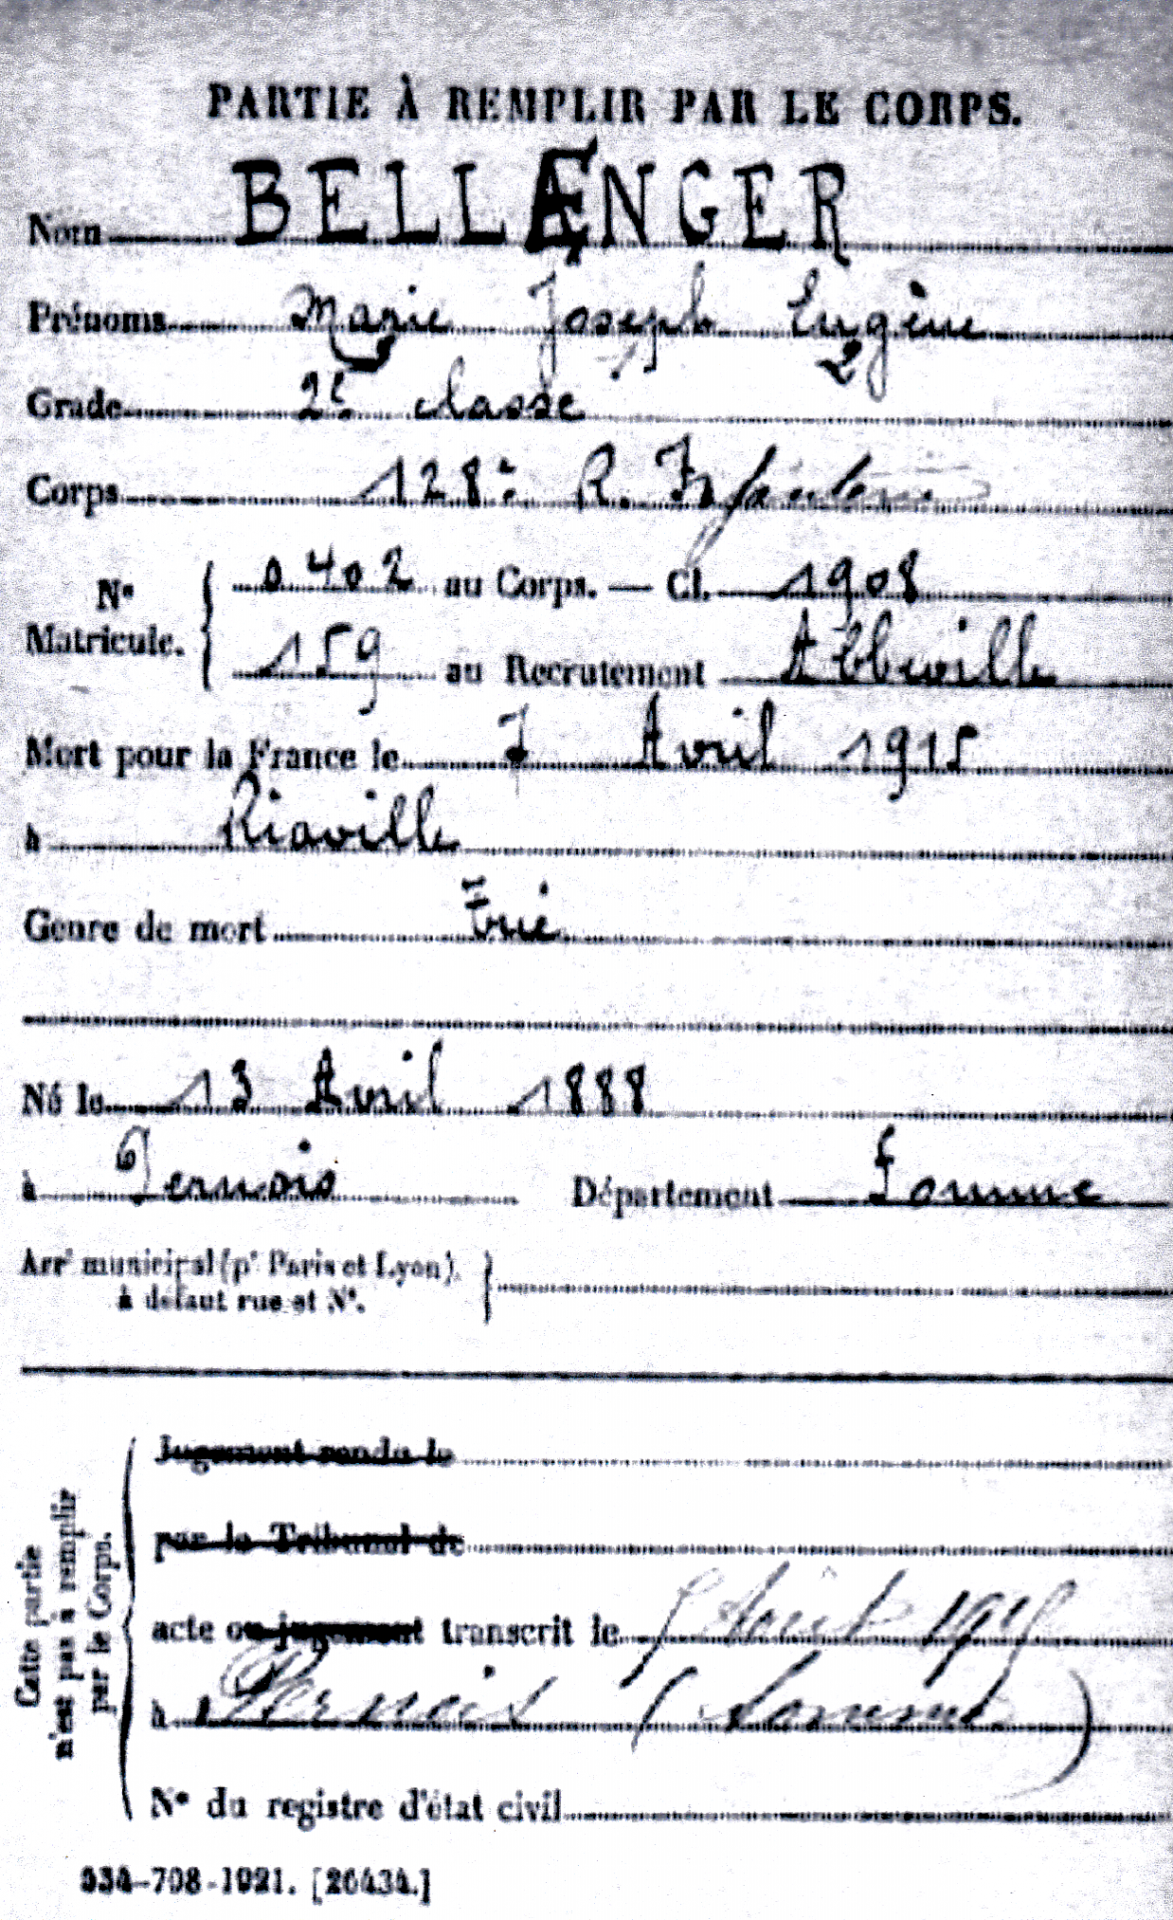 PARTIE À REMPLIR PAR LE CORPS.
Nom BELLÆNGER
Prénoms Marie Joseph Eugène
2
Grade 2e classe
Corps 128e R. Infanterie
No Matricule. { 0402 au Corps. — Cl. 1908
159 au Recrutement Abbeville
Mort pour la France le 7 Avril 1915
à Riaville
Genre de mort Tué
Né le 13 Avril 1888
à Pernois Département Somme
Arrt municipal (pr Paris et Lyon), à défaut rue et No. }
Cette partie n'est pas à remplir par le Corps. {
Jugement rendu le
par le Tribunal de
acte ou jugement transcrit le Août 1915
à Pernois (Somme)
No du registre d'état civil
534-708-1921. [26434.]